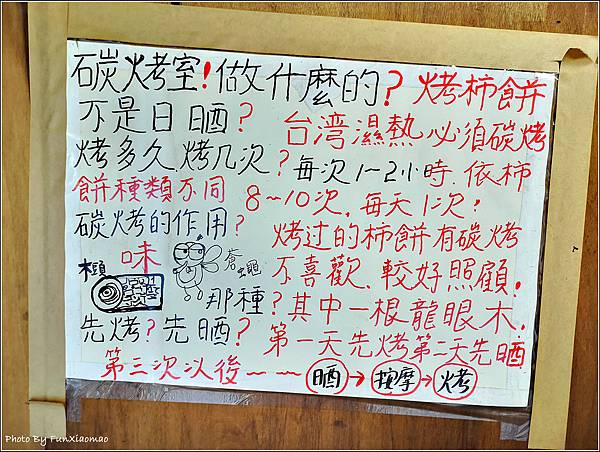 碳烤室!做什麼的?烤柿餅
不是日晒?台湾濕熱必須碳烤
烤多久.烤几次?每次1~2小時.依柿
餅種類不同 8~10次.每天1次!
碳烤的作用?烤过的柿餅有碳烤
味 蒼蠅不喜歡.較好照顧!
木頭 那種?其中一根龍眼木.
先烤?先晒?第一天先烤第二天先晒
第三次以後~~晒→按摩→烤
Photo By FunXiaomao